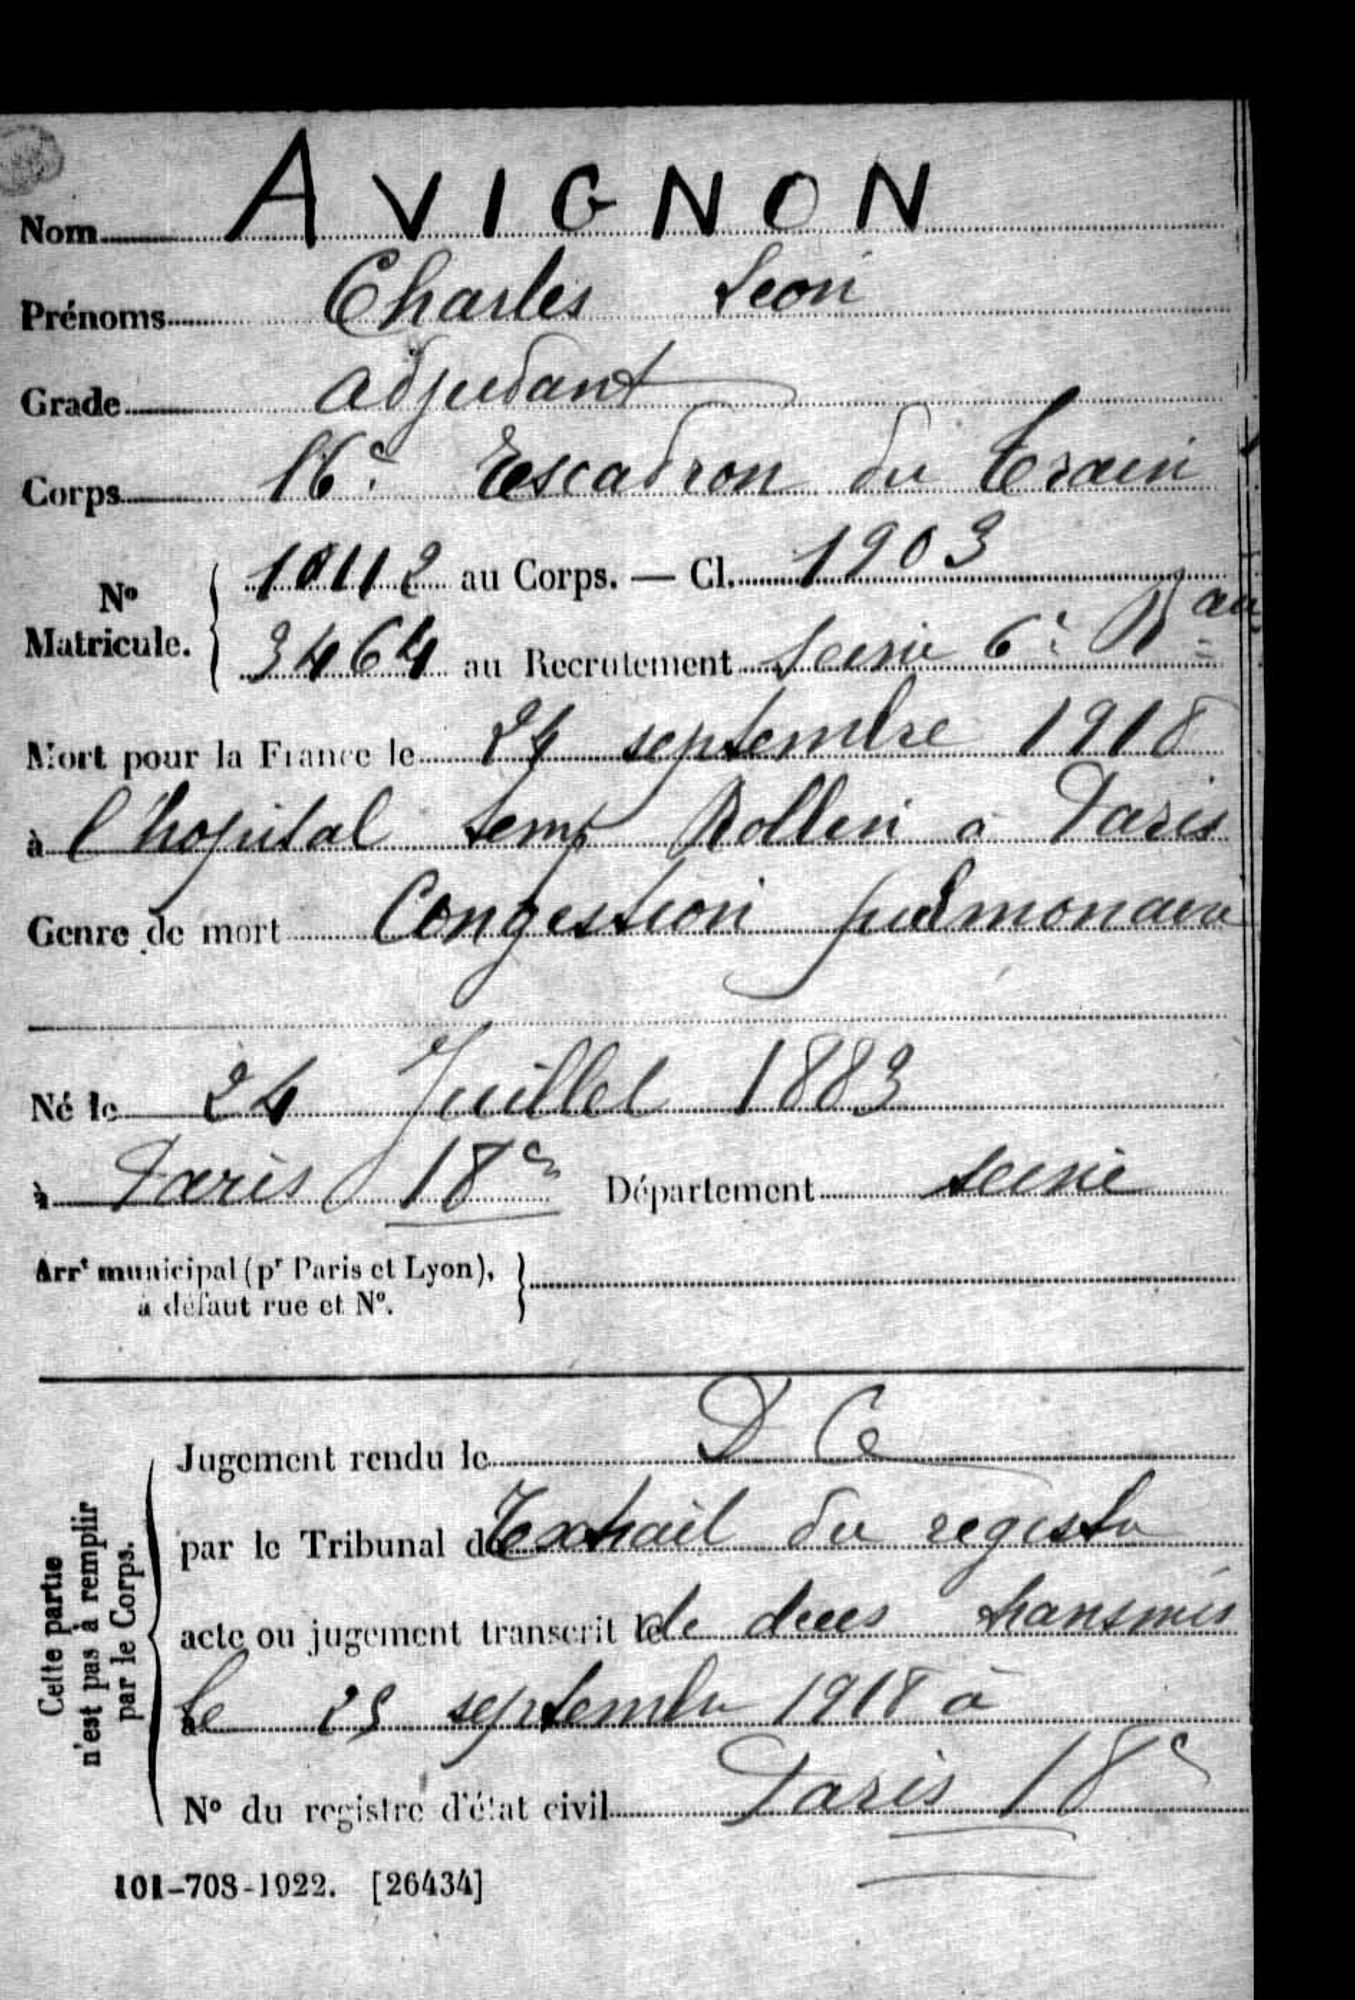 Nom AVIGNON
Prénoms Charles Leon
Grade adjudant
Corps 16e Escadron du Train
No Matricule. 10112 au Corps. — Cl. 1903
3464 au Recrutement Seine 6e Bau
Mort pour la France le 24 septembre 1918
à l'hopital temp Rollin à Paris
Genre de mort Congestion pulmonaire
Né le 24 Juillet 1883
à Paris 18e Département Seine
Arrt municipal (pr Paris et Lyon),
à défaut rue et No.
Cette partie
n'est pas à remplir
par le Corps.
Jugement rendu le D C
par le Tribunal de Extrait du registre
acte ou jugement transcrit le de deces transmis
à le 25 septembre 1918 à
No du registre d'état civil Paris 18e
101-708-1922. [26434]